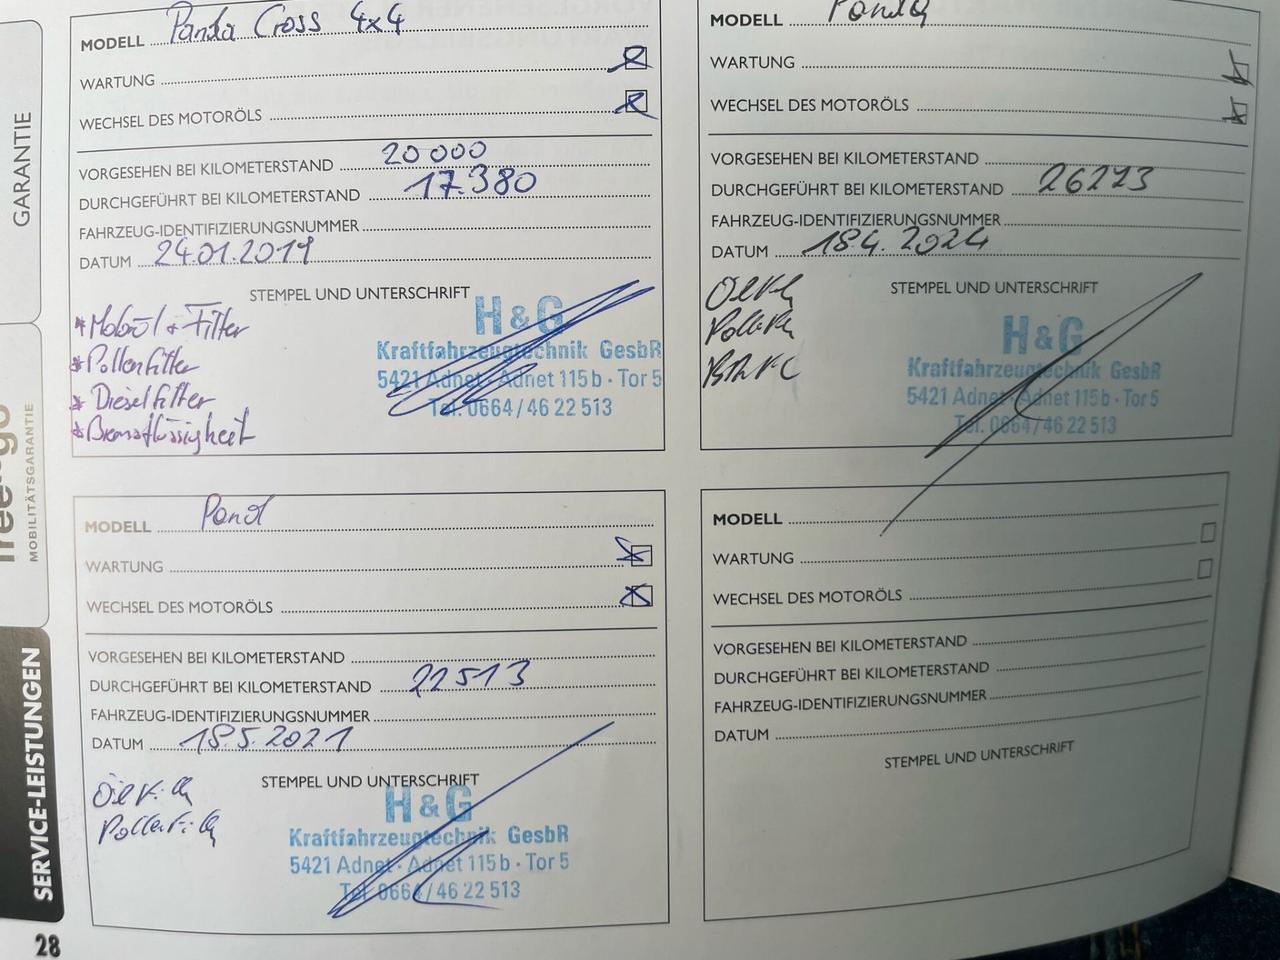 GARANTIE
free to go
MOBILITÄTSGARANTIE
SERVICE-LEISTUNGEN
28
MODELL Panda Cross 4x4
WARTUNG
WECHSEL DES MOTORÖLS
VORGESEHEN BEI KILOMETERSTAND 20 000
DURCHGEFÜHRT BEI KILOMETERSTAND 17.380
FAHRZEUG-IDENTIFIZIERUNGSNUMMER
DATUM 24.01.2019
STEMPEL UND UNTERSCHRIFT
* Motoröl + Filter
* Pollenfilter
* Dieselfilter
* Bremsflüssigkeit
H & G
Kraftfahrzeugtechnik GesbR
5421 Adnet · Adnet 115 b · Tor 5
Tel. 0664 / 46 22 513
MODELL Pand
WARTUNG
WECHSEL DES MOTORÖLS
VORGESEHEN BEI KILOMETERSTAND
DURCHGEFÜHRT BEI KILOMETERSTAND 22513
FAHRZEUG-IDENTIFIZIERUNGSNUMMER
DATUM 18.5.2021
STEMPEL UND UNTERSCHRIFT
H & G
Kraftfahrzeugtechnik GesbR
5421 Adnet · Adnet 115 b · Tor 5
Tel. 0664 / 46 22 513
MODELL Panda
WARTUNG
WECHSEL DES MOTORÖLS
VORGESEHEN BEI KILOMETERSTAND
DURCHGEFÜHRT BEI KILOMETERSTAND 26213
FAHRZEUG-IDENTIFIZIERUNGSNUMMER
DATUM 18.4.2024
STEMPEL UND UNTERSCHRIFT
H & G
Kraftfahrzeugtechnik GesbR
5421 Adnet · Adnet 115 b · Tor 5
Tel. 0664 / 46 22 513
MODELL
WARTUNG
WECHSEL DES MOTORÖLS
VORGESEHEN BEI KILOMETERSTAND
DURCHGEFÜHRT BEI KILOMETERSTAND
FAHRZEUG-IDENTIFIZIERUNGSNUMMER
DATUM
STEMPEL UND UNTERSCHRIFT